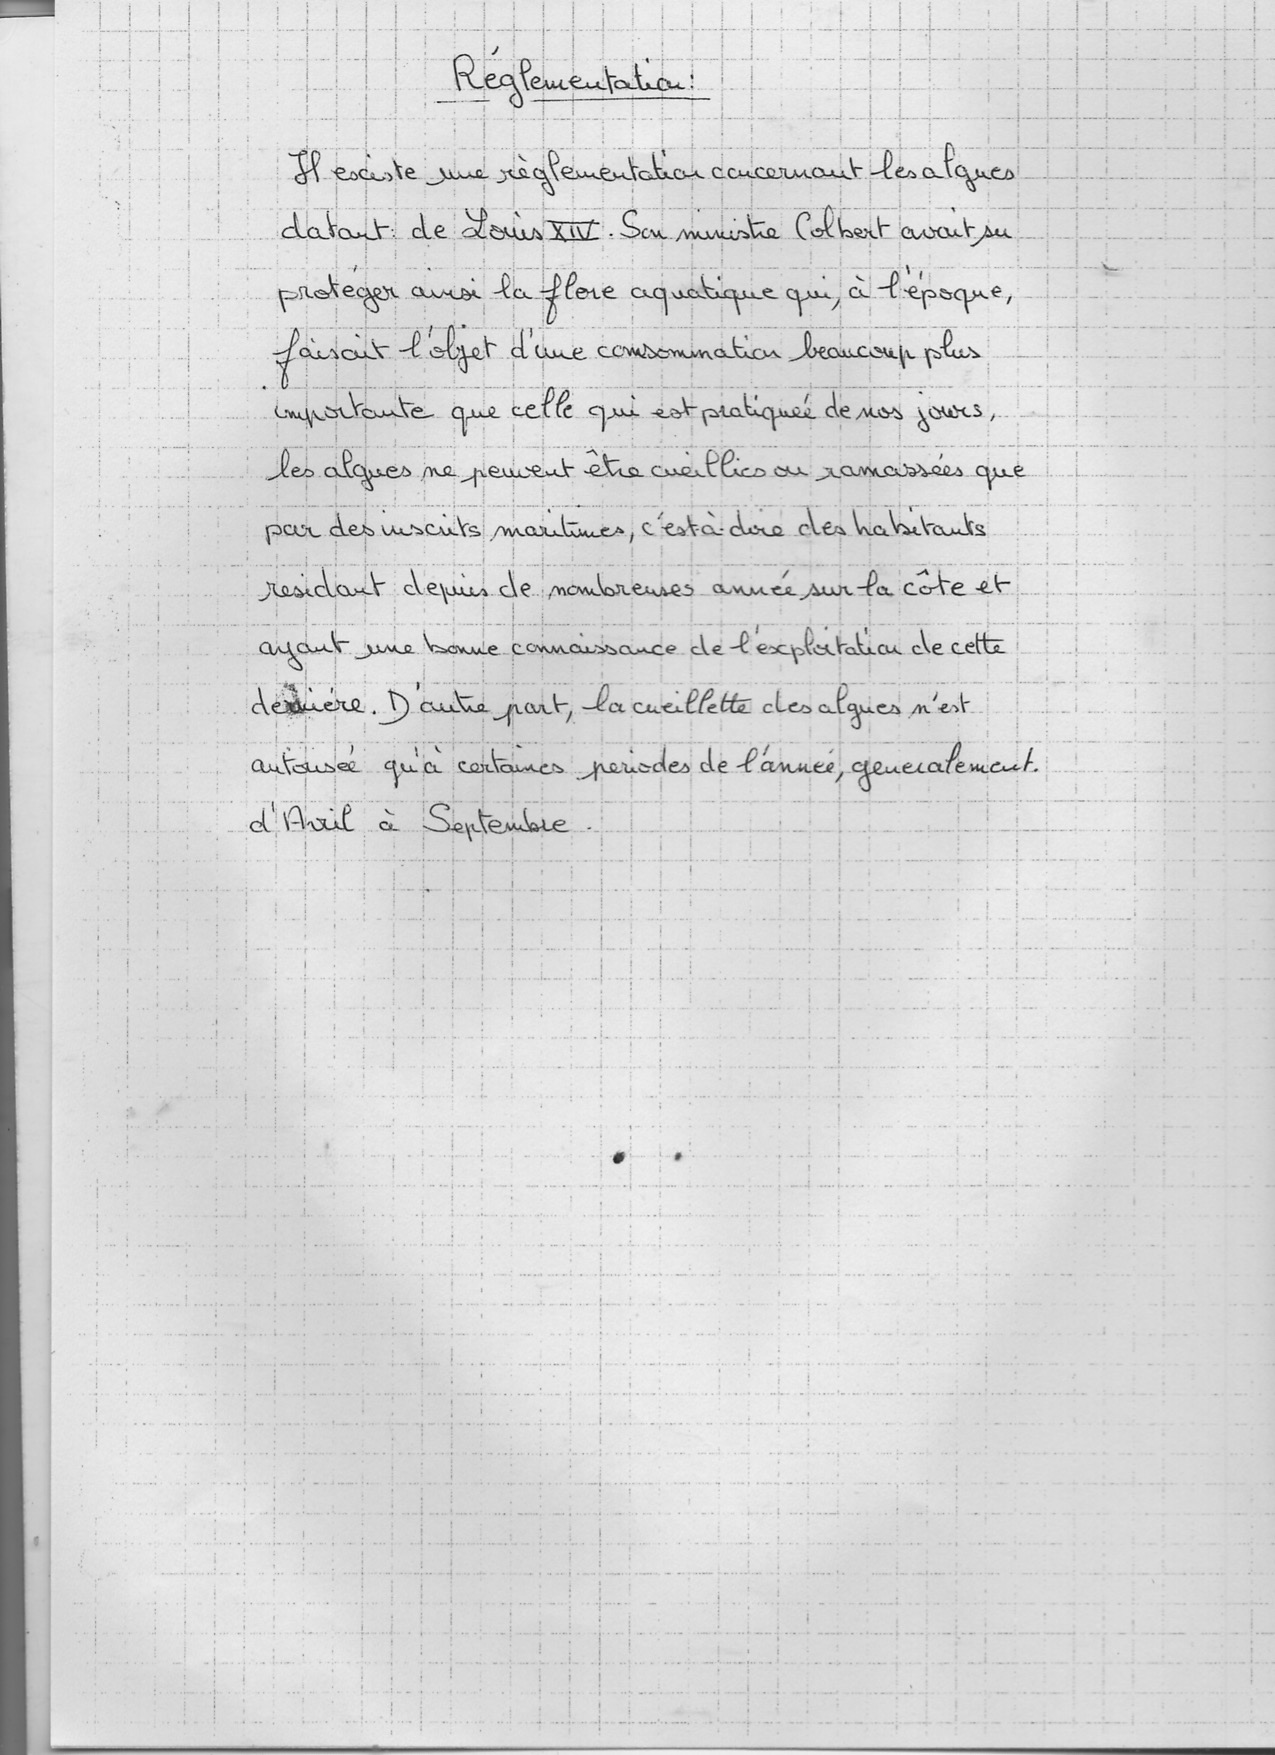 Réglementation:
Il existe une règlementation concernant les algues
datant de Louis XIV. Son ministre Colbert avait su
protéger ainsi la flore aquatique qui, à l'époque,
faisait l'objet d'une consommation beaucoup plus
importante que celle qui est pratiqueé de nos jours,
les algues ne peuvent être cueillies ou ramassées que
par des inscrits maritimes, c'est à-dire des habitants
residant depuis de nombreuses année sur la côte et
ayant une bonne connaissance de l'exploitation de cette
derniére. D'autre part, la cueillette des algues n'est
autoriseé qu'à certaines periodes de l'anneé, generalement.
d'Avril à Septembre.